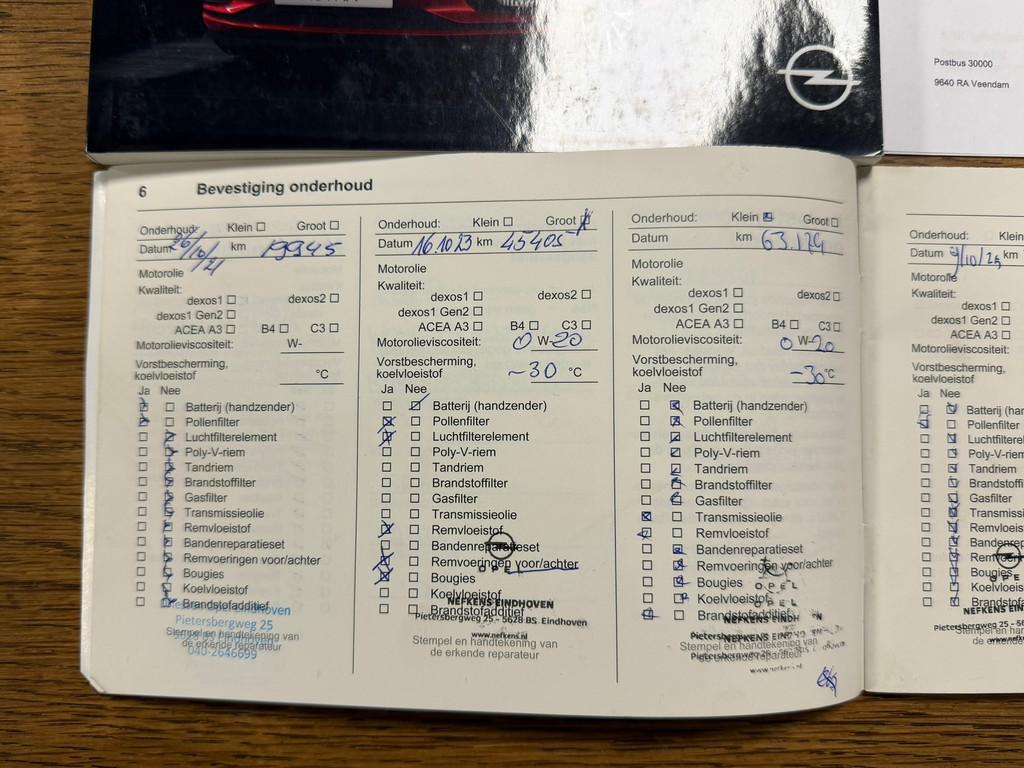 Postbus 30000
9640 RA Veendam
6 Bevestiging onderhoud
Onderhoud: Klein Groot
Datum 26/10/21 km 19945
Motorolie
Kwaliteit:
dexos1 dexos2
dexos1 Gen2
ACEA A3 B4 C3
Motorolieviscositeit: W-
Vorstbescherming,
koelvloeistof °C
Ja Nee
Batterij (handzender)
Pollenfilter
Luchtfilterelement
Poly-V-riem
Tandriem
Brandstoffilter
Gasfilter
Transmissieolie
Remvloeistof
Bandenreparatieset
Remvoeringen voor/achter
Bougies
Koelvloeistof
Brandstofadditief
Eindhoven
Pietersbergweg 25
Eindhoven
040-2646699
Stempel en handtekening van
de erkende reparateur
Onderhoud: Klein Groot
Datum 16.10 23 km 45405
Motorolie
Kwaliteit:
dexos1 dexos2
dexos1 Gen2
ACEA A3 B4 C3
Motorolieviscositeit: 0 W-20
Vorstbescherming,
koelvloeistof -30 °C
Ja Nee
Batterij (handzender)
Pollenfilter
Luchtfilterelement
Poly-V-riem
Tandriem
Brandstoffilter
Gasfilter
Transmissieolie
Remvloeistof
Bandenreparatieset
Remvoeringen voor/achter
Bougies
Koelvloeistof
Brandstofadditief
OPEL
NEFKENS EINDHOVEN
Pietersbergweg 25 - 5628 BS Eindhoven
www.nefkens.nl
Stempel en handtekening van
de erkende reparateur
Onderhoud: Klein Groot
Datum km 63.174
Motorolie
Kwaliteit:
dexos1 dexos2
dexos1 Gen2
ACEA A3 B4 C3
Motorolieviscositeit: 0 W-20
Vorstbescherming,
koelvloeistof -30 °C
Ja Nee
Batterij (handzender)
Pollenfilter
Luchtfilterelement
Poly-V-riem
Tandriem
Brandstoffilter
Gasfilter
Transmissieolie
Remvloeistof
Bandenreparatieset
Remvoeringen voor/achter
Bougies
Koelvloeistof
Brandstofadditief
OPEL
OPEL
NEFKENS EINDH
Pietersbergweg
Stempel en handtekening van
de erkende reparateur
Onderhoud: Klein
Datum km
Motorolie
Kwaliteit:
dexos1
dexos1 Gen2
ACEA A3
Motorolieviscositeit:
Vorstbescherming,
koelvloeistof
Ja Nee
Batterij (han
Pollenfilter
Luchtfilterele
Poly-V-riem
Tandriem
Brandstoffilt
Gasfilter
Transmissi
Remvloeis
Bandenre
Remvoe
Bougies
Koelvloe
Brandst
NEFKENS
Pietersbergweg 25 - 5
www.
Stempel en han
de erk